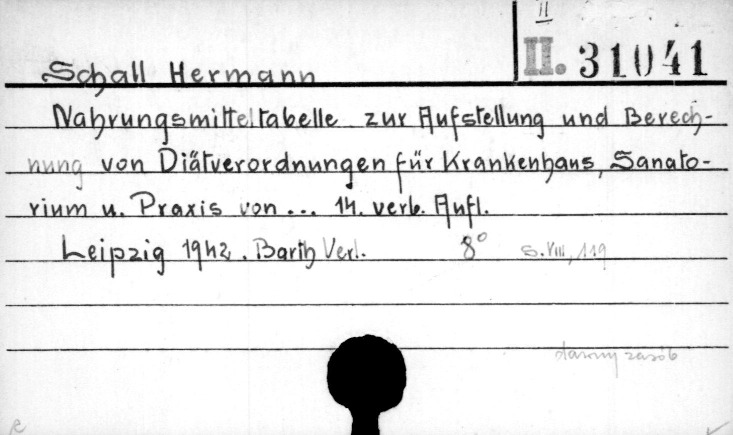 II
II. 31041
Schall Hermann
Nahrungsmitteltabelle zur Aufstellung und Berech-
nung von Diätverordnungen für Krankenhaus, Sanato-
rium u. Praxis von ... 14. verb. Aufl.
Leipzig 1942. Barth Verl. 8° S. VIII, 119
dawny zasób